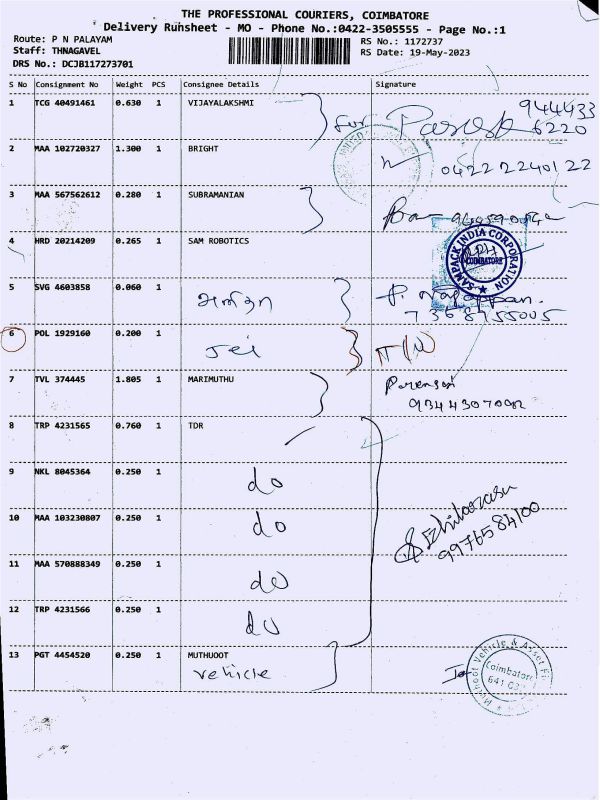 THE PROFESSIONAL COURIERS, COIMBATORE
Delivery Runsheet - MO - Phone No.:0422-3505555 - Page No.:1
Route: P N PALAYAM RS No.: 1172737
Staff: THNAGAVEL RS Date: 19-May-2023
DRS No.: DCJB117273701
S No Consignment No Weight PCS Consignee Details Signature
1 TCG 40491461 0.630 1 VIJAYALAKSHMI
for 944433
6220
2 MAA 102720327 1.300 1 BRIGHT
04222240122
3 MAA 567562612 0.280 1 SUBRAMANIAN
4 HRD 20214209 0.265 1 SAM ROBOTICS
SAMPACK INDIA CORPORATION
COIMBATORE
5 SVG 4603858 0.060 1
6 POL 1929160 0.200 1
7 TVL 374445 1.805 1 MARIMUTHU
8 TRP 4231565 0.760 1 TDR
9 NKL 8045364 0.250 1 do
10 MAA 103230807 0.250 1 do
Ezhilarasu
9976584100
11 MAA 570888349 0.250 1 do
12 TRP 4231566 0.250 1 do
13 PGT 4454520 0.250 1 MUTHUOOT
vehicle
Muthoot Vehicle & Asset
Coimbatore
641